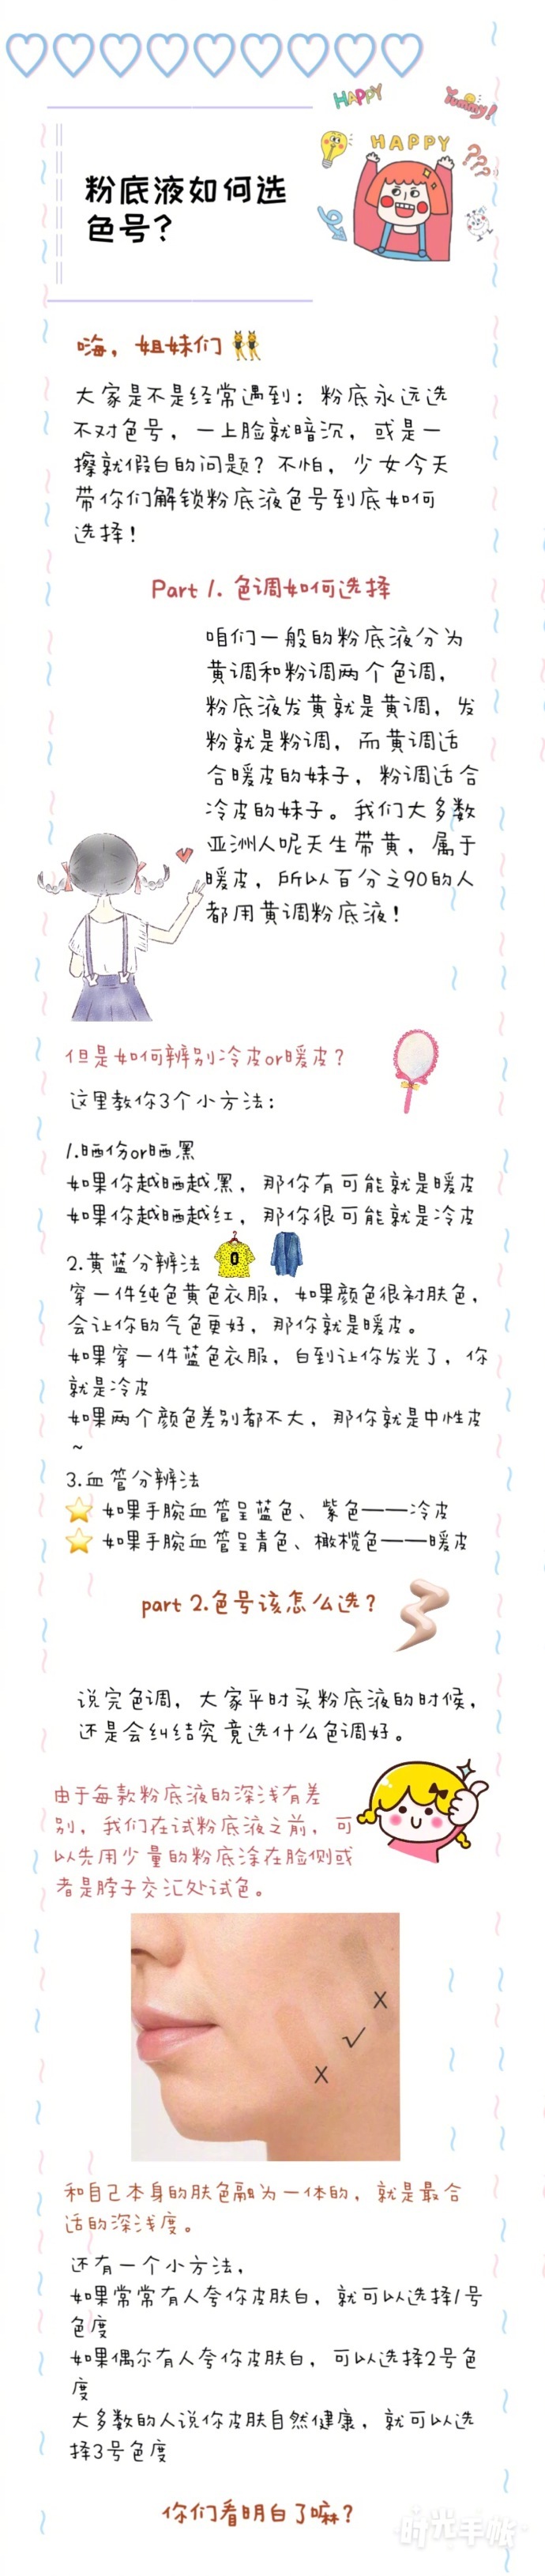 HAPPY
Yummy!
HAPPY
???
粉底液如何选
色号?
嗨，姐妹们
大家是不是经常遇到：粉底永远选
不对色号，一上脸就暗沉，或是一
擦就假白的问题？不怕，少女今天
带你们解锁粉底液色号到底如何
选择！
Part 1. 色调如何选择
咱们一般的粉底液分为
黄调和粉调两个色调，
粉底液发黄就是黄调，发
粉就是粉调，而黄调适
合暖皮的妹子，粉调适合
冷皮的妹子。我们大多数
亚洲人呢天生带黄，属于
暖皮，所以百分之90的人
都用黄调粉底液！
但是如何辨别冷皮or暖皮？
这里教你3个小方法：
1.晒伤or晒黑
如果你越晒越黑，那你有可能就是暖皮
如果你越晒越红，那你很可能就是冷皮
2.黄蓝分辨法
0
穿一件纯色黄色衣服，如果颜色很衬肤色，
会让你的气色更好，那你就是暖皮。
如果穿一件蓝色衣服，白到让你发光了，你
就是冷皮
如果两个颜色差别都不大，那你就是中性皮
~
3.血管分辨法
如果手腕血管呈蓝色、紫色——冷皮
如果手腕血管呈青色、橄榄色——暖皮
part 2.色号该怎么选？
说完色调，大家平时买粉底液的时候，
还是会纠结究竟选什么色调好。
由于每款粉底液的深浅有差
别，我们在试粉底液之前，可
以先用少量的粉底涂在脸侧或
者是脖子交汇处试色。
X
√
X
和自己本身的肤色融为一体的，就是最合
适的深浅度。
还有一个小方法，
如果常常有人夸你皮肤白，就可以选择1号
色度
如果偶尔有人夸你皮肤白，可以选择2号色
度
大多数的人说你皮肤自然健康，就可以选
择3号色度
你们看明白了嘛？
时光手帐